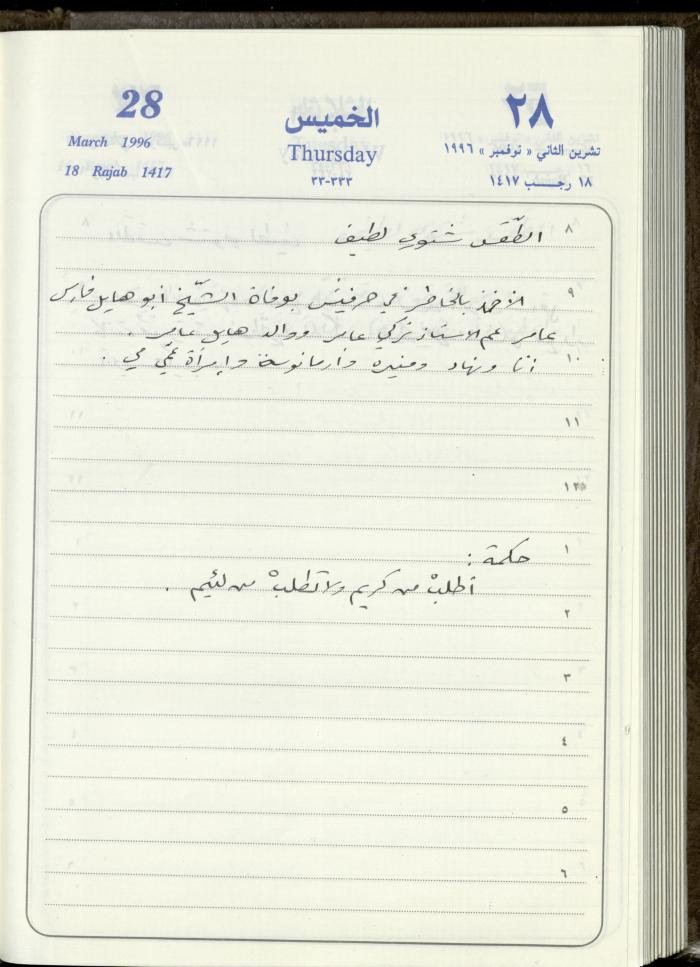 28
March 1996
18 Rajab 1417
الخميس
Thursday
٣٣-٣٣٣
٢٨
تشرين الثاني « نوفمبر » ١٩٩٦
١٨ رجـب ١٤١٧
٨ الطّقس شتوي لطيف
٩ الأخذ بالخاطر في حرفيش بوفاة الشّيخ أبو هايل فارس
عامر عم الاستاذ تركي عامر ووالد هايل عامر .
١٠ أنا ونهاد ومنيرة وأرمانوسة وإمرأة عمّي مي .
١١
١٢
١ حكمة :
أطلبْ من كريم ولا تطلبْ من لئيم .
٢
٣
٤
٥
٦